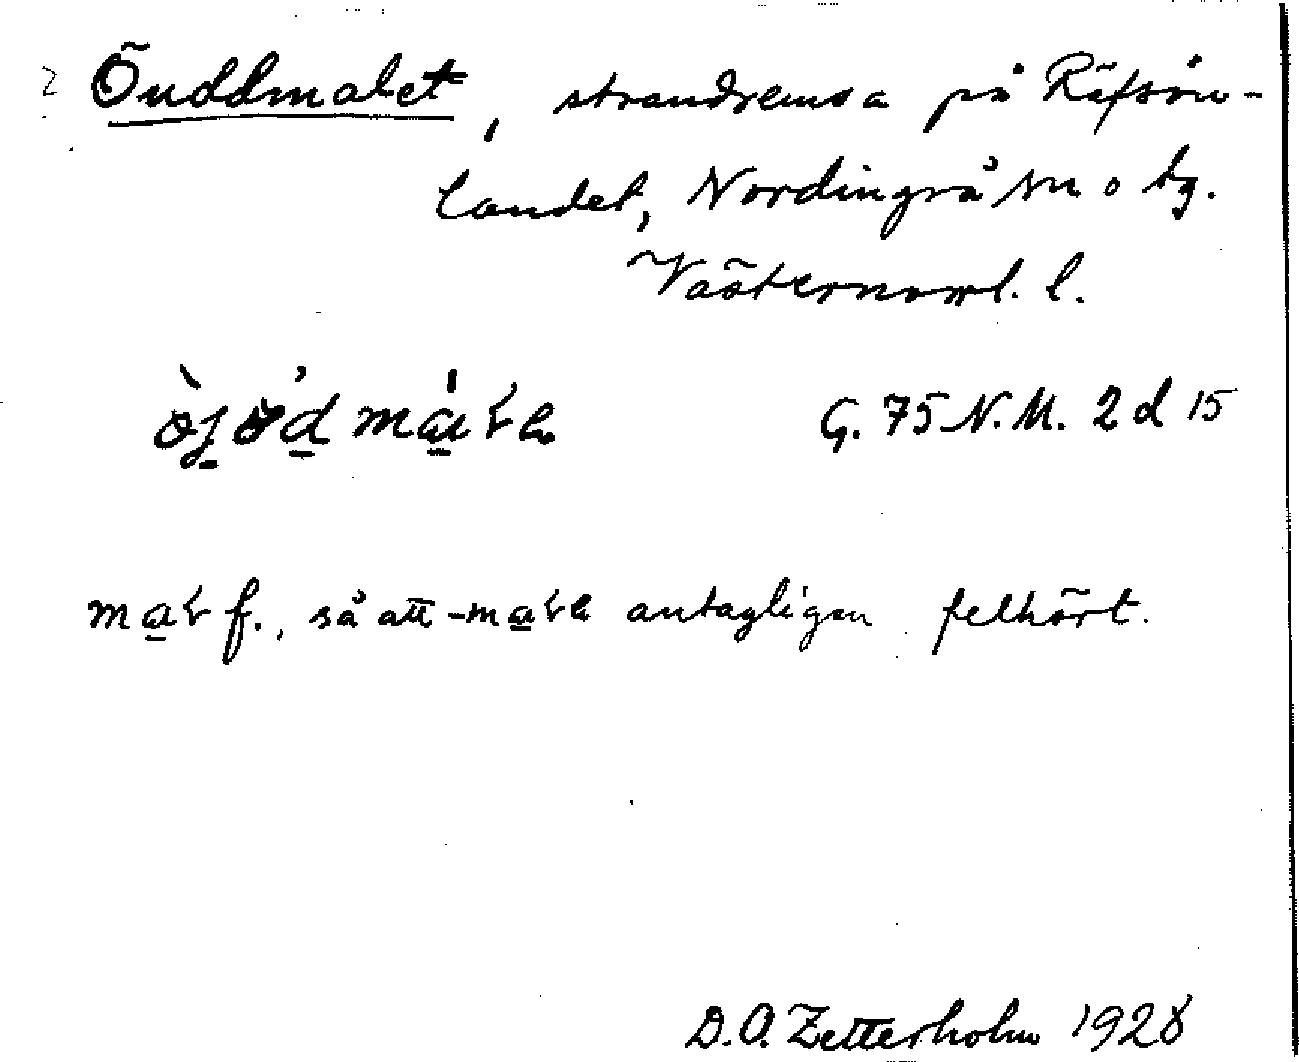 Önddmalet, strandremsa på Räfsön-
landet, Nordingrå sn o tg.
Västernorrl. l.
G. 75 N.M. 2 d 15
f., så att antagligen felhört.
D.O. Zetterholm 1928